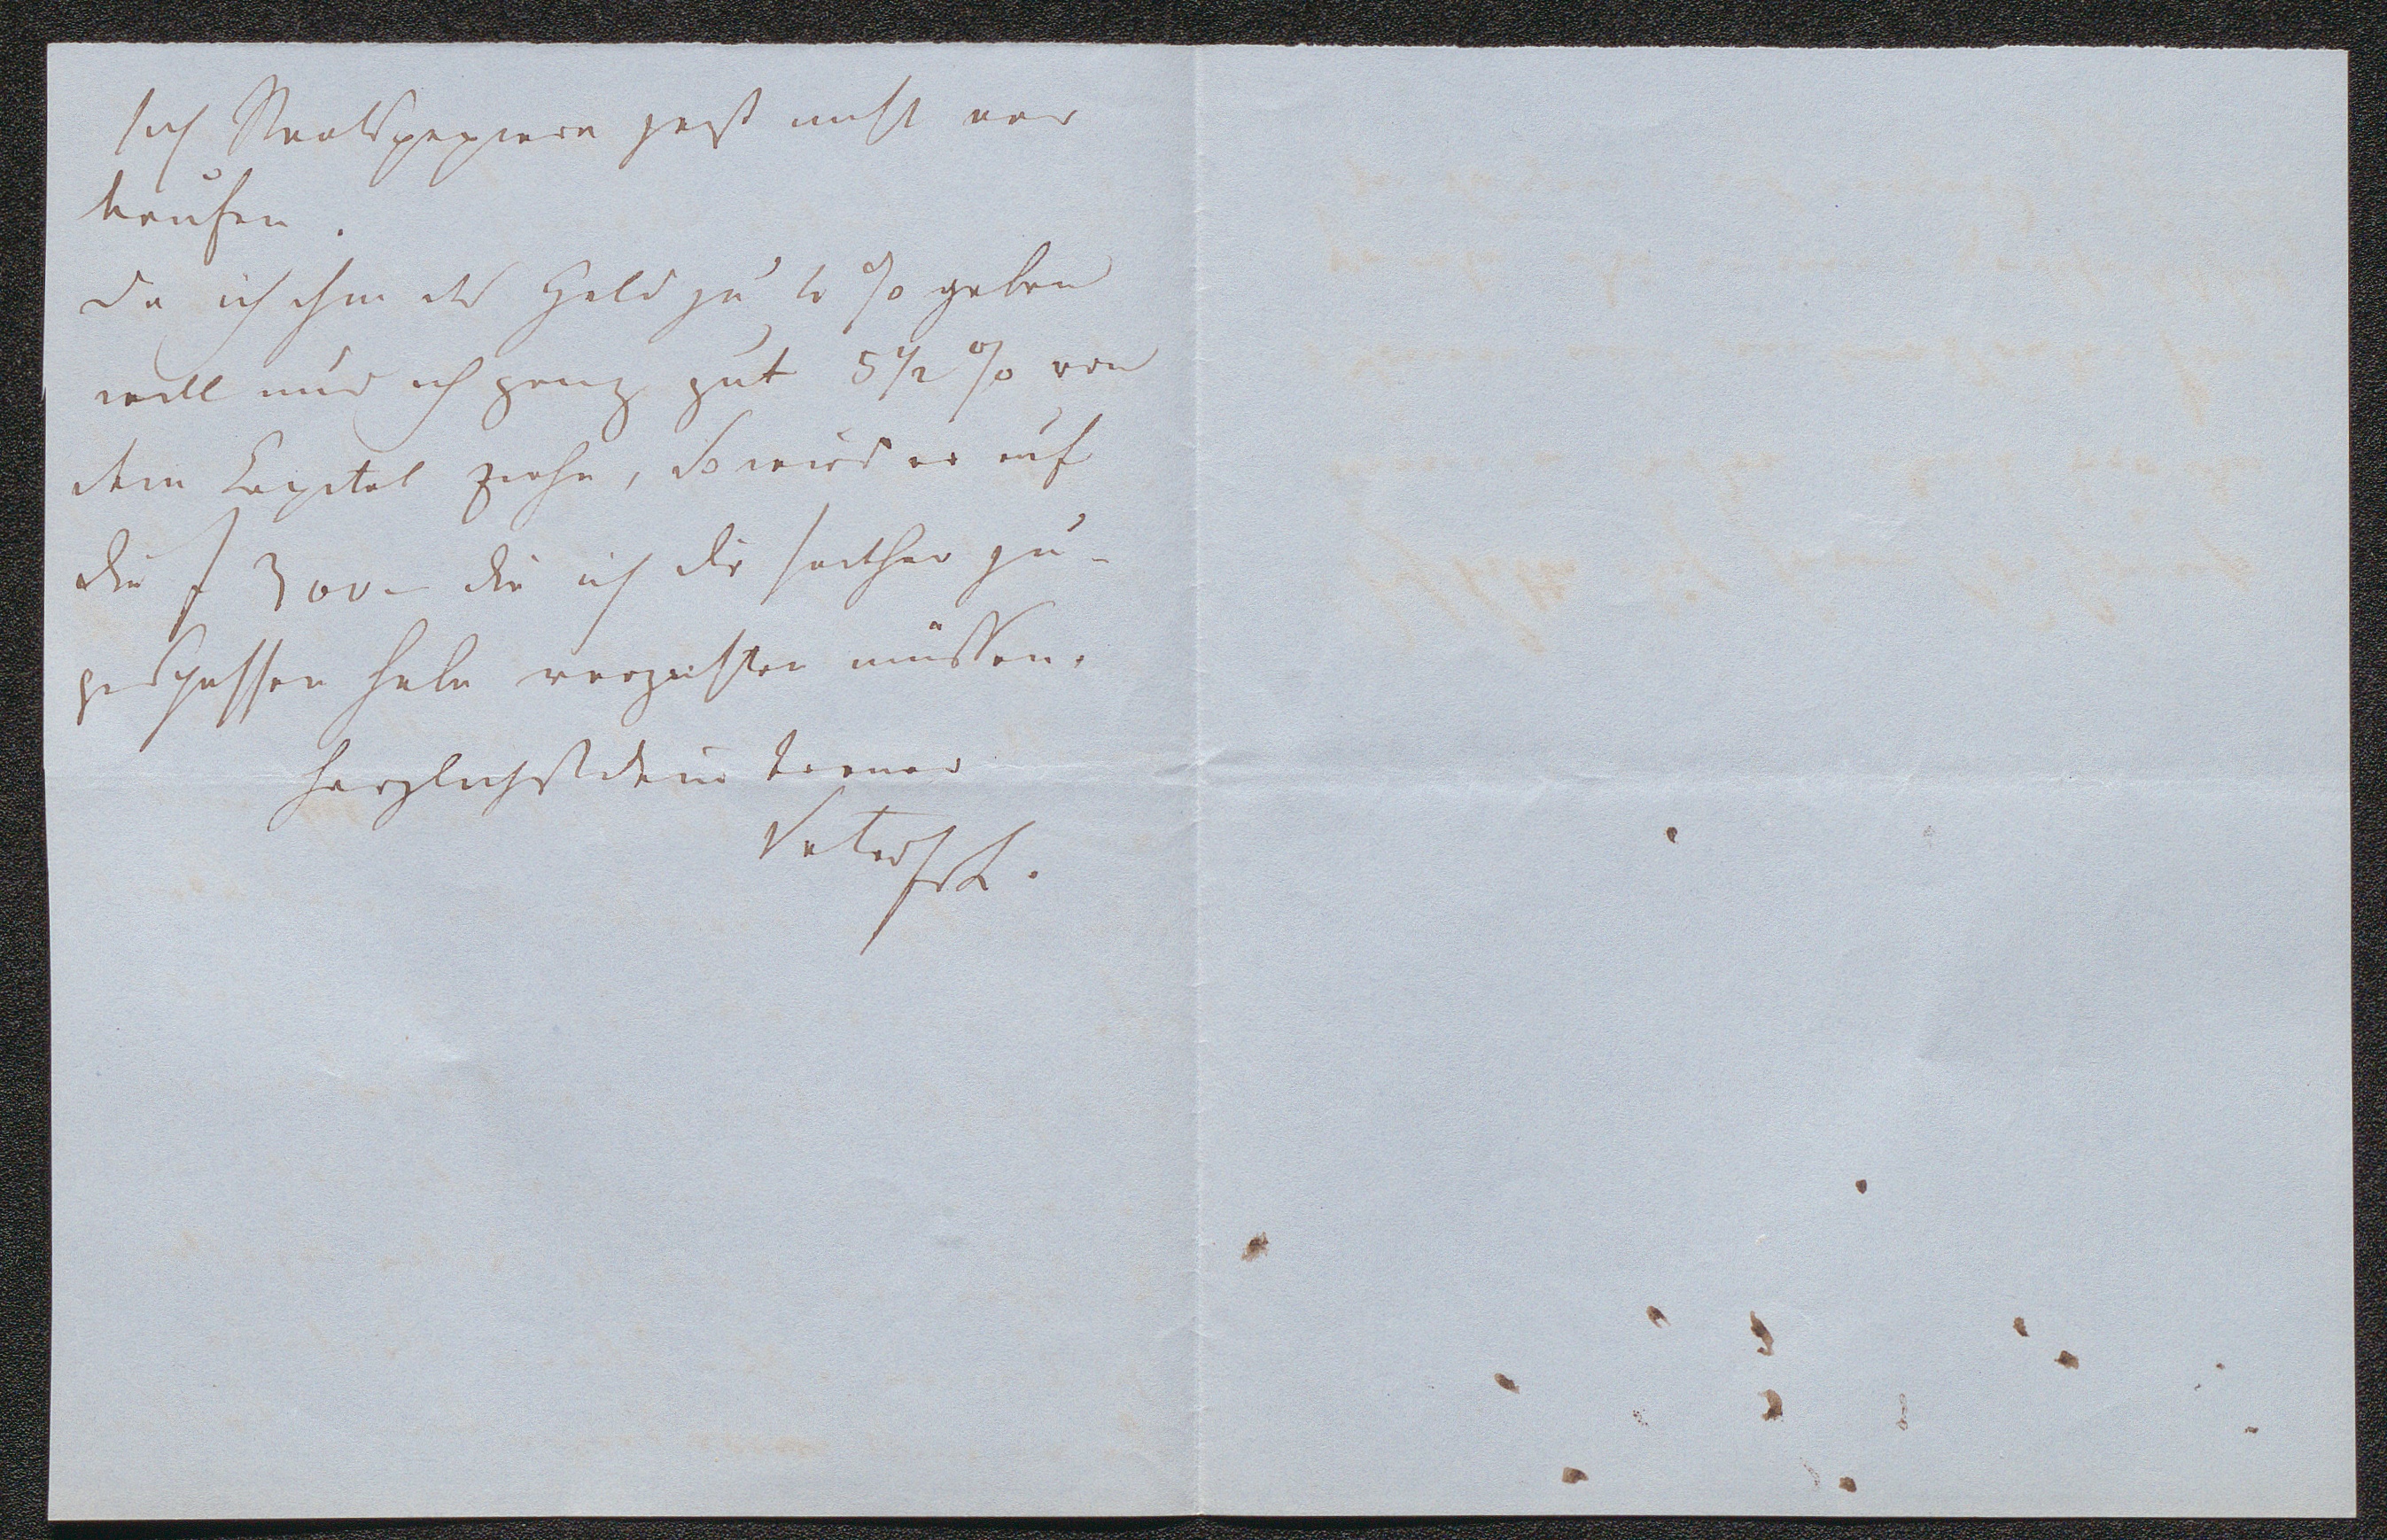 sich Staatspapiere jetzt nicht ver
kaufen.
Da ich ihm das Geld zu 4 % geben
will und ich ganz gut 5 1/2 % von
dem Capital ziehe, So wird er auf
die f 300 – die ich dir seither zu-
geschossen habe verzichten müssen.
herzlichst dein treuer
Vater